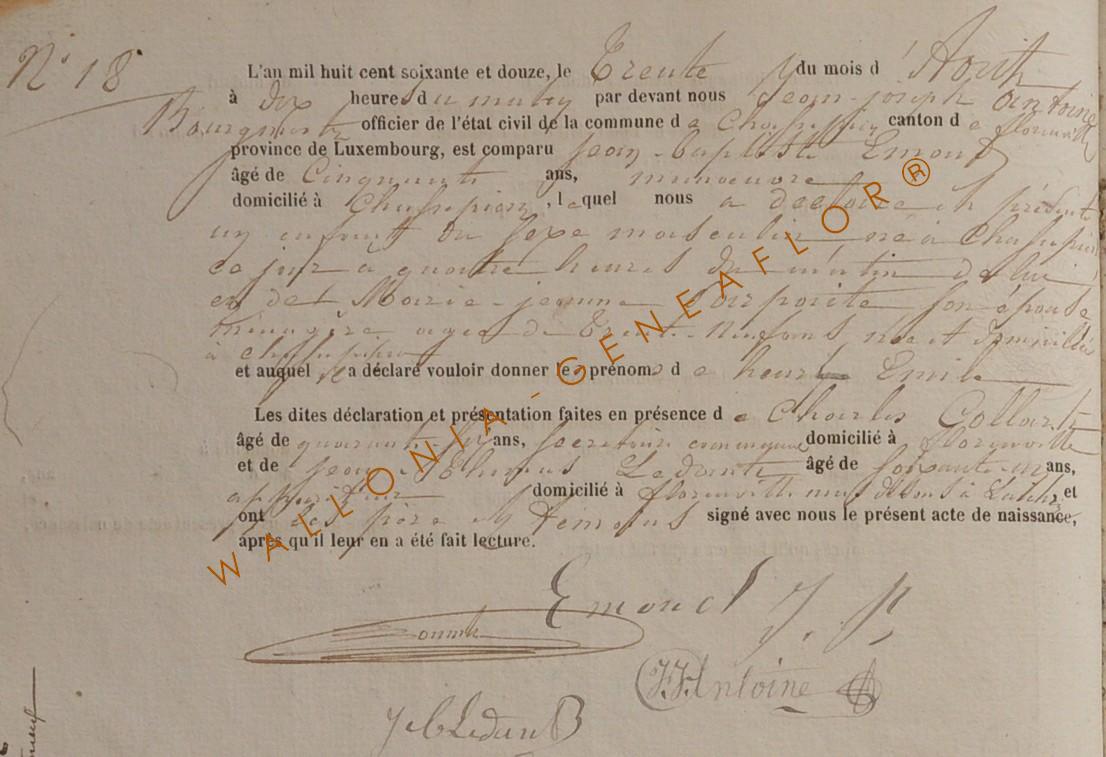 N° 18
L'an mil huit cent soixante et douze, le Trente du mois d'Août
à dix heures du matin par devant nous Jean-Joseph Antoine
Bourgmestre officier de l'état civil de la commune de Chassepierre canton de Florenville
province de Luxembourg, est comparu Jean-baptiste Emond
âgé de Cinquante ans, manoeuvre
domicilié à Chassepierre, lequel nous a déclaré et présenté
un enfant du sexe masculin né à Chassepierre
ce jour à quatre heures du matin de lui
et de Marie-jeanne son épouse
ménagère agée de Trente-Neuf ans, née et domiciliée
à Chassepierre
et auquel il a déclaré vouloir donner les prénoms de henri Emile
Les dites déclaration et présentation faites en présence de Charles Collart
âgé de ans, Secrétaire communal domicilié à florenville
et de Jean Ledant âgé de soixante-un ans,
domicilié à florenville et
ont les père et témoins signé avec nous le présent acte de naissance,
après qu'il leur en a été fait lecture.
Emond J. B.
JJ Antoine
Ledant
WALLONIA-GENEAFLOR®